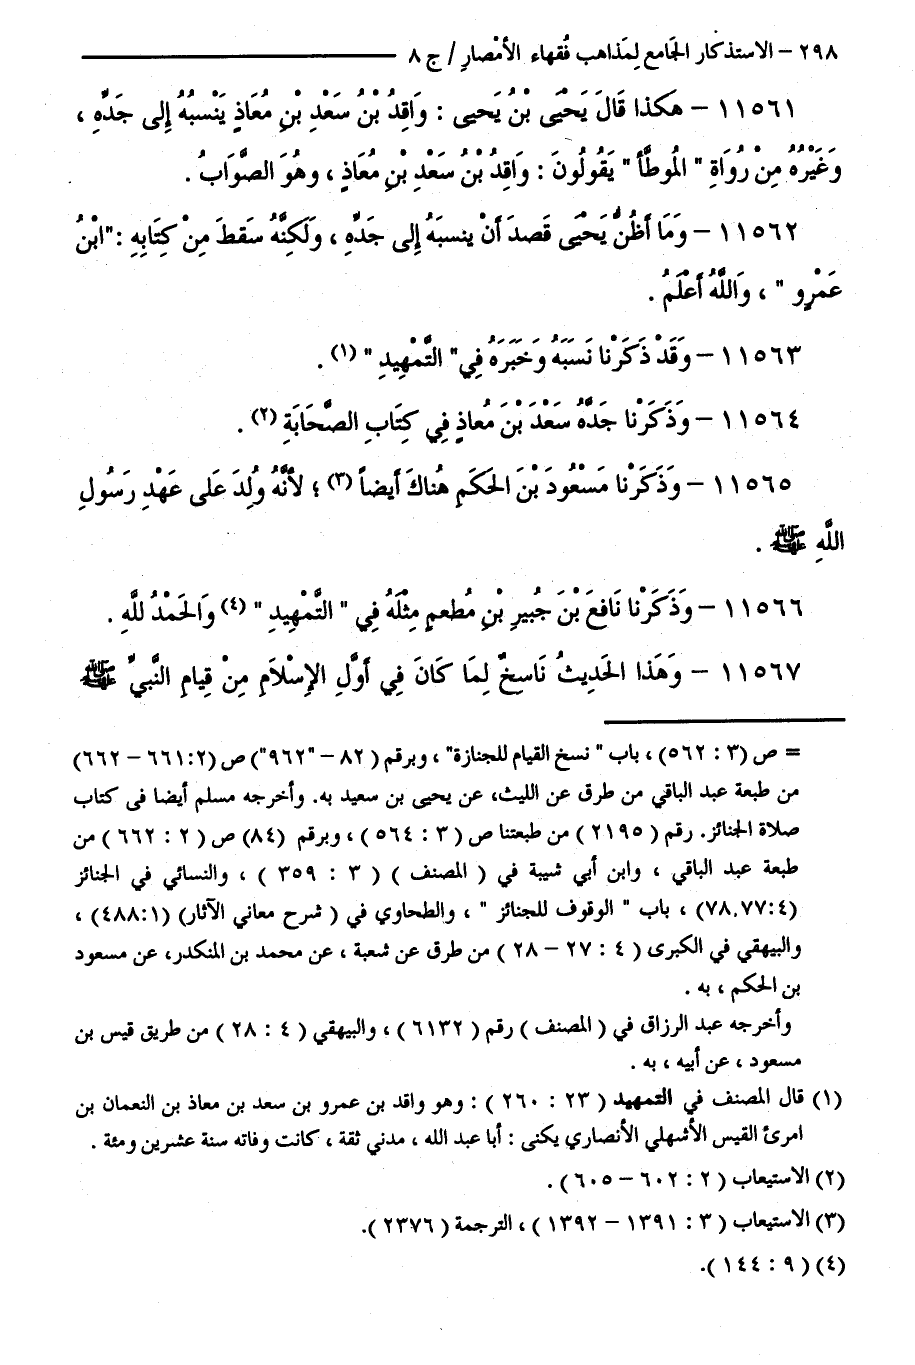 ٢٩٨ – الاستذكار الجَامع لِمَذاهب فُقهاء الأمْصارِ / ج ٨
١١٥٦١ – هَكذا قَالَ يَحْيَى بْنُ يَحيى : وَاقِدُ بْنُ سَعْدِ بْنِ مُعَاذٍ يَنْسبُهُ إِلى جَدِّهِ ،
وَغَيْرُهُ مِنْ رُوَاةِ " الموطَّأ " يَقُولُونَ : وَاقِدُ بْنُ سَعْدِ بْنِ مُعَاذٍ ، وهُوَ الصَّوَابُ .
١١٥٦٢ – وَمَا أَظُنُّ يَحْيَى قَصدَ أَنْ ينسبَهُ إِلى جَدِّهِ ، وَلَكِنَّهُ سَقطَ مِنْ كِتَابِهِ : "ابْنُ
عَمْرٍو " ، وَاللَّهُ أَعْلَمُ .
١١٥٦٣ – وَقَدْ ذَكَرْنا نَسَبَهُ وَخَبَرَهُ فِي " التَّمْهِيدِ " (١) .
١١٥٦٤ – وَذَكَرْنا جَدَّهُ سَعْدَ بْنَ مُعاذٍ فِي كِتَابِ الصَّحَابَةِ (٢) .
١١٥٦٥ – وَذَكَرْنَا مَسْعُودَ بْنَ الحَكَمِ هُناكَ أَيضاً (٣) ؛ لأَنَّهُ ولِدَ عَلى عَهْدِ رَسُولِ
اللَّهِ ﷺ .
١١٥٦٦ – وَذَكَرْنَا نَافِعَ بْنَ جُبيرِ بْنِ مُطعمٍ مِثْلَهُ فِي " التَّمْهِيدِ " (٤) وَالحَمْدُ للَّهِ .
١١٥٦٧ – وَهَذا الحَدِيثُ نَاسِخٌ لِمَا كَانَ فِي أَوَّلِ الإِسْلاَمِ مِنْ قِيامِ النَّبيِّ ﷺ
= ص (٣ : ٥٦٢) ، باب " نسخ القيام للجنازة" ، وبرقم ( ٨٢ – "٩٦٢") ص (٢:٦٦١ – ٦٦٢)
من طبعة عبد الباقي من طرق عن الليث، عن يحيى بن سعيد به. وأخرجه مسلم أيضا فى كتاب
صلاة الجنائز. رقم ( ٢١٩٥ ) من طبعتنا ص ( ٣ : ٥٦٤ ) ، وبرقم (٨٤) ص ( ٢ : ٦٦٢ ) من
طبعة عبد الباقي ، وابن أبي شيبة في ( المصنف ) ( ٣ : ٣٥٩ ) ، والنسائي في الجنائز
(٤:٧٧،٧٨) ، باب " الوقوف للجنائز " ، والطحاوي في ( شرح معاني الآثار) (١:٤٨٨) ،
والبيهقي في الكبرى ( ٤ : ٢٧ – ٢٨ ) من طرق عن شعبة ، عن محمد بن المنكدر، عن مسعود
بن الحكم ، به .
وأخرجه عبد الرزاق في ( المصنف ) رقم ( ٦١٣٢ ) ، والبيهقي ( ٤ : ٢٨ ) من طريق قيس بن
مسعود ، عن أبيه ، به .
(١) قال المصنف في التمهيد ( ٢٣ : ٢٦٠ ) : وهو واقد بن عمرو بن سعد بن معاذ بن النعمان بن
امرئ القيس الأشهلي الأنصاري يكنى : أبا عبد الله ، مدني ثقة ، كانت وفاته سنة عشرين ومئة .
(٢) الاستيعاب ( ٢ : ٦٠٢ – ٦٠٥ ) .
(٣) الاستيعاب ( ٣ : ١٣٩١ – ١٣٩٢ ) ، الترجمة ( ٢٣٧٦ ).
(٤) ( ٩ : ١٤٤ ).